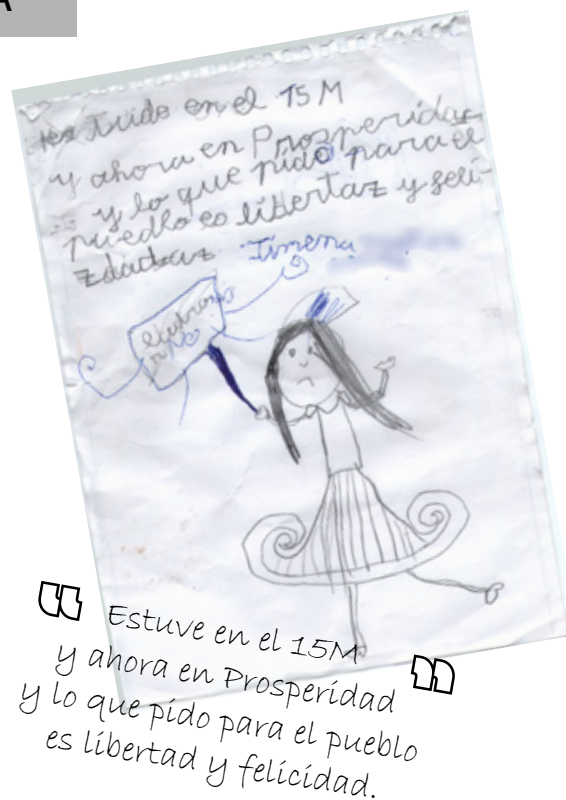 A
es tuide en el 15 M
y ahora en Prosperidaz
y lo que pido para el
pueblo es libertaz y feli-
zdadaz Jimena
Estuve en el 15M
y ahora en Prosperidad
y lo que pido para el pueblo
es libertad y felicidad.